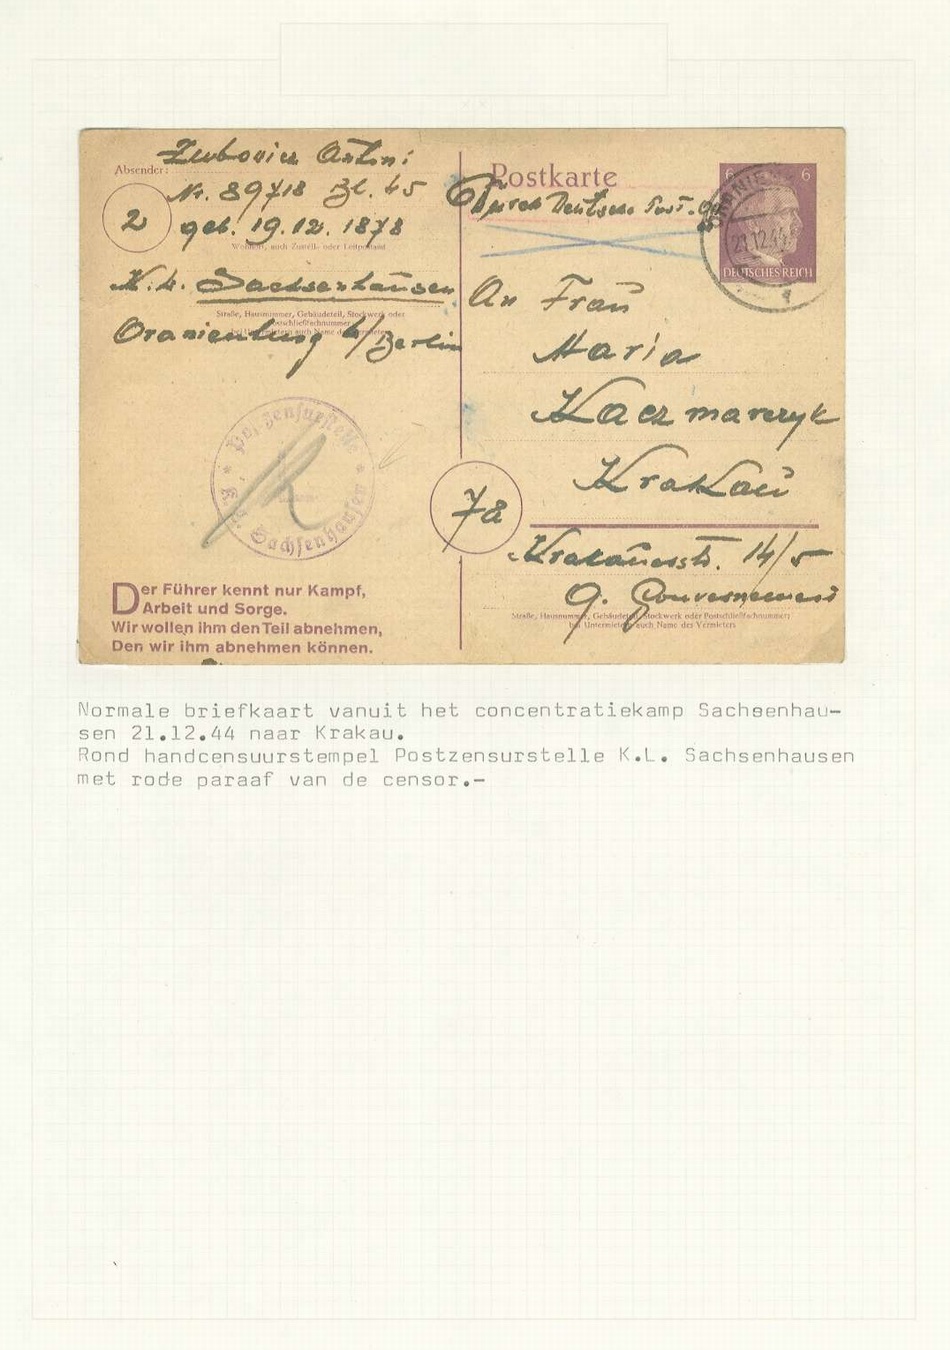 Absender:
Zubowicz Antoni
Nr. 89718 Bl. 45
geb. 19.12. 1878
2
Wohnort, auch Zustell- oder Leitpostamt
K. L. Sachsenhausen
Straße, Hausnummer, Gebäudeteil, Stockwerk oder
Postschließfachnummer
bei Untermietern auch Name des Vermieters
Oranienburg b/Berlin
Postzensurstelle
K.L. Sachsenhausen
Der Führer kennt nur Kampf,
Arbeit und Sorge.
Wir wollen ihm den Teil abnehmen,
Den wir ihm abnehmen können.
Postkarte
Durch Deutsche Post.
6 6
ORANIENBURG
21.12.44
DEUTSCHES REICH
An Frau
Maria
Kaczmarczyk
Krakau
7a
Krakauerstr. 14/5
G. Gouvernement
Straße, Hausnummer, Gebäudeteil, Stockwerk oder Postschließfachnummer;
bei Untermietern auch Name des Vermieters
Normale briefkaart vanuit het concentratiekamp Sachsenhau-
sen 21.12.44 naar Krakau.
Rond handcensuurstempel Postzensurstelle K.L. Sachsenhausen
met rode paraaf van de censor.-